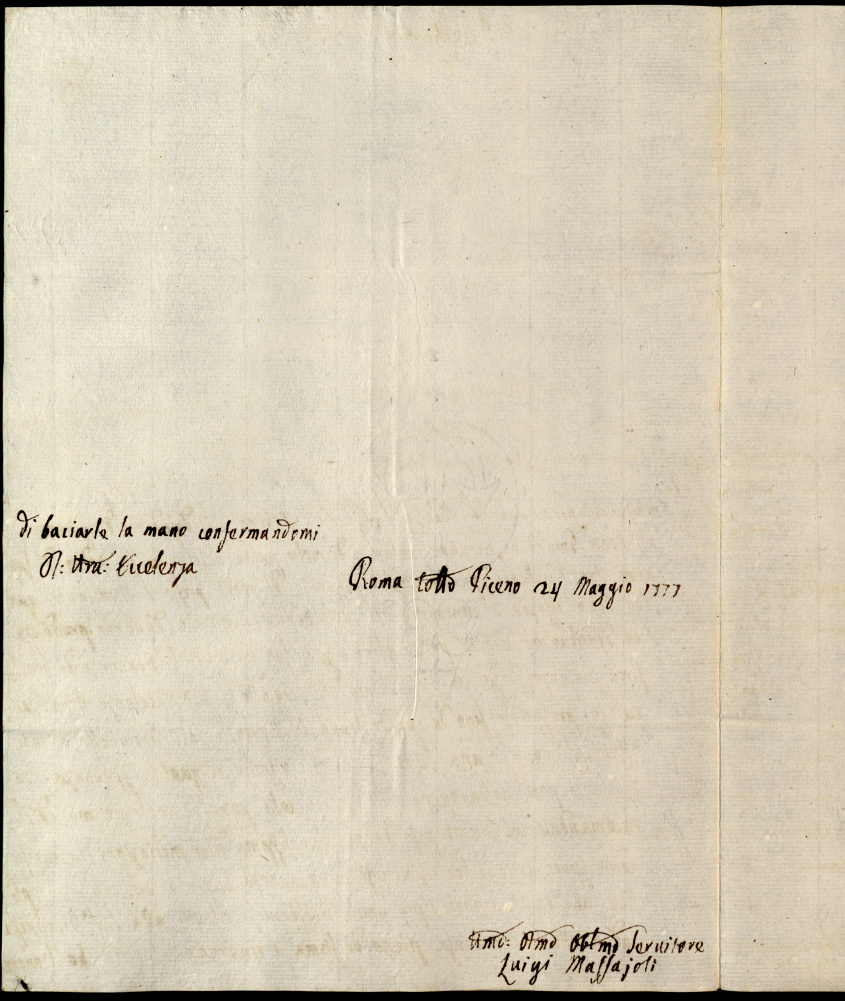 di baciarle la mano confermandomi
Di: Vra: Eccelenza
Roma Collo Piceno 24 Maggio 1777
Umo: Dmo Obblmo Servitore
Luigi Massajoli